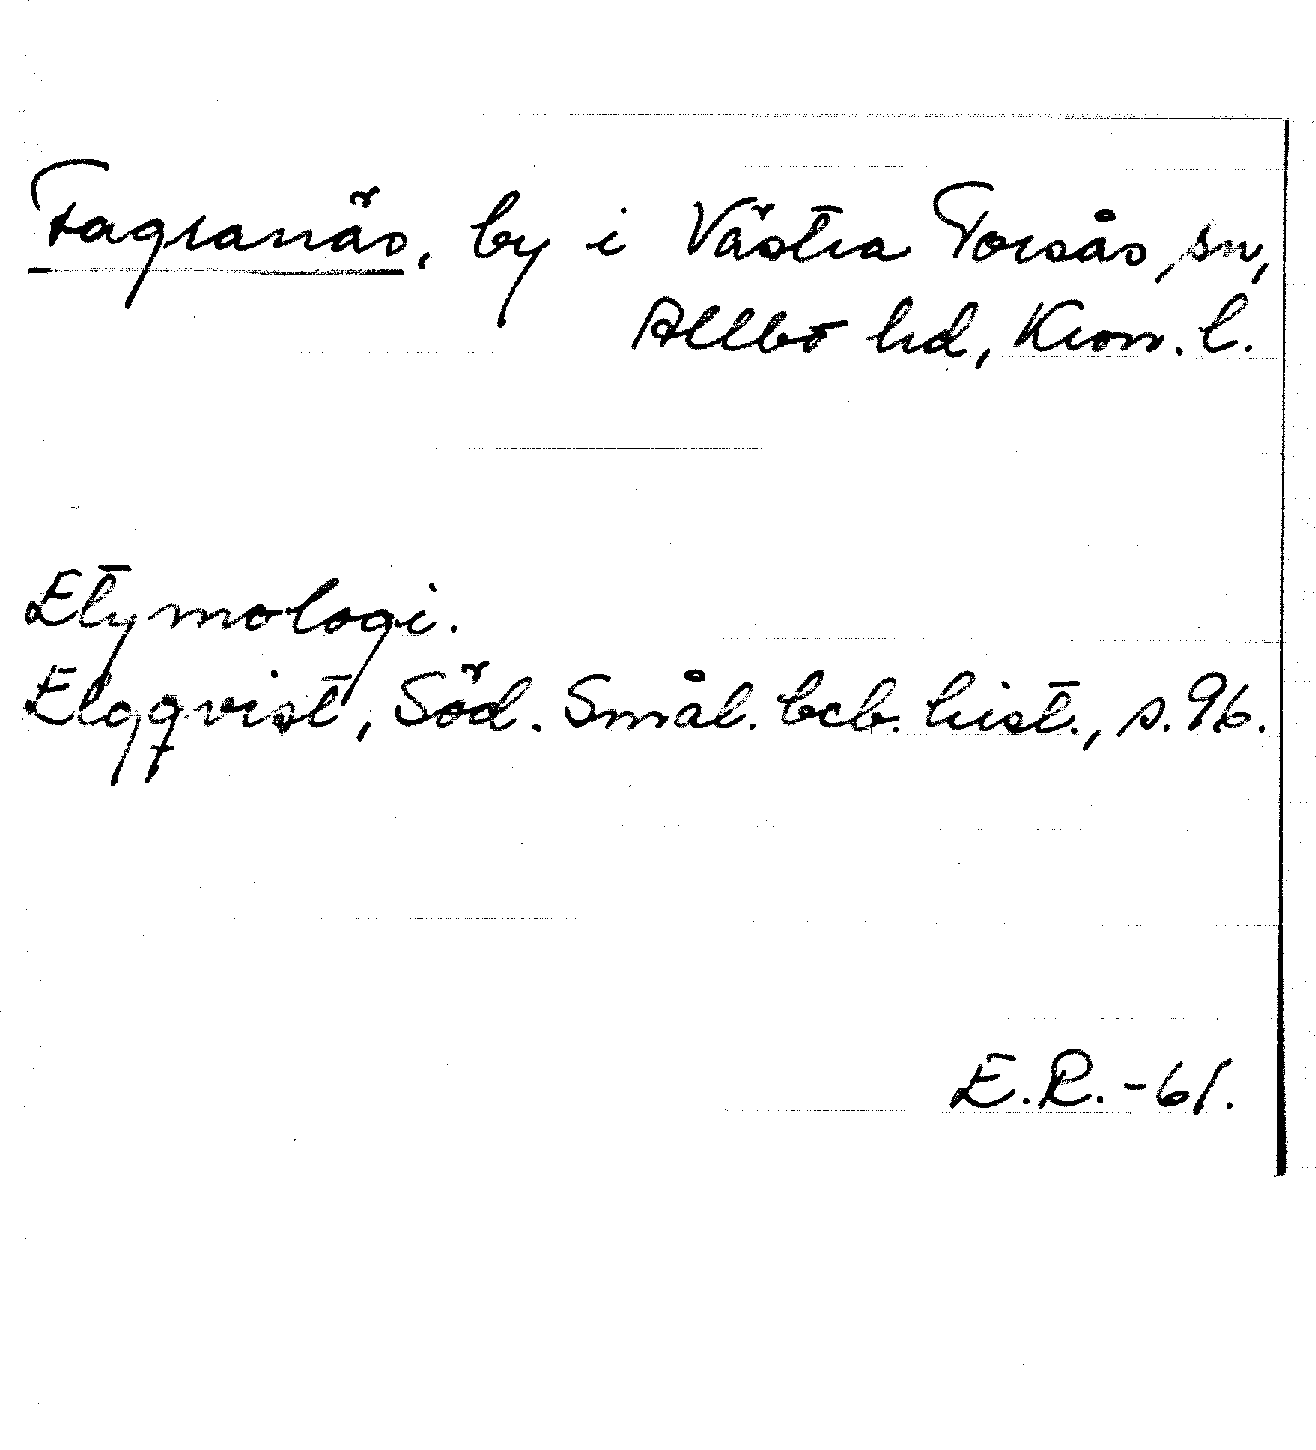 Fagranäs, by i Västra Torsås, sn,
Allbo hd, Kron. l.
Etymologi.
Elgqvist, Söd. Smål. beb. hist., s. 96.
E.R. -61.